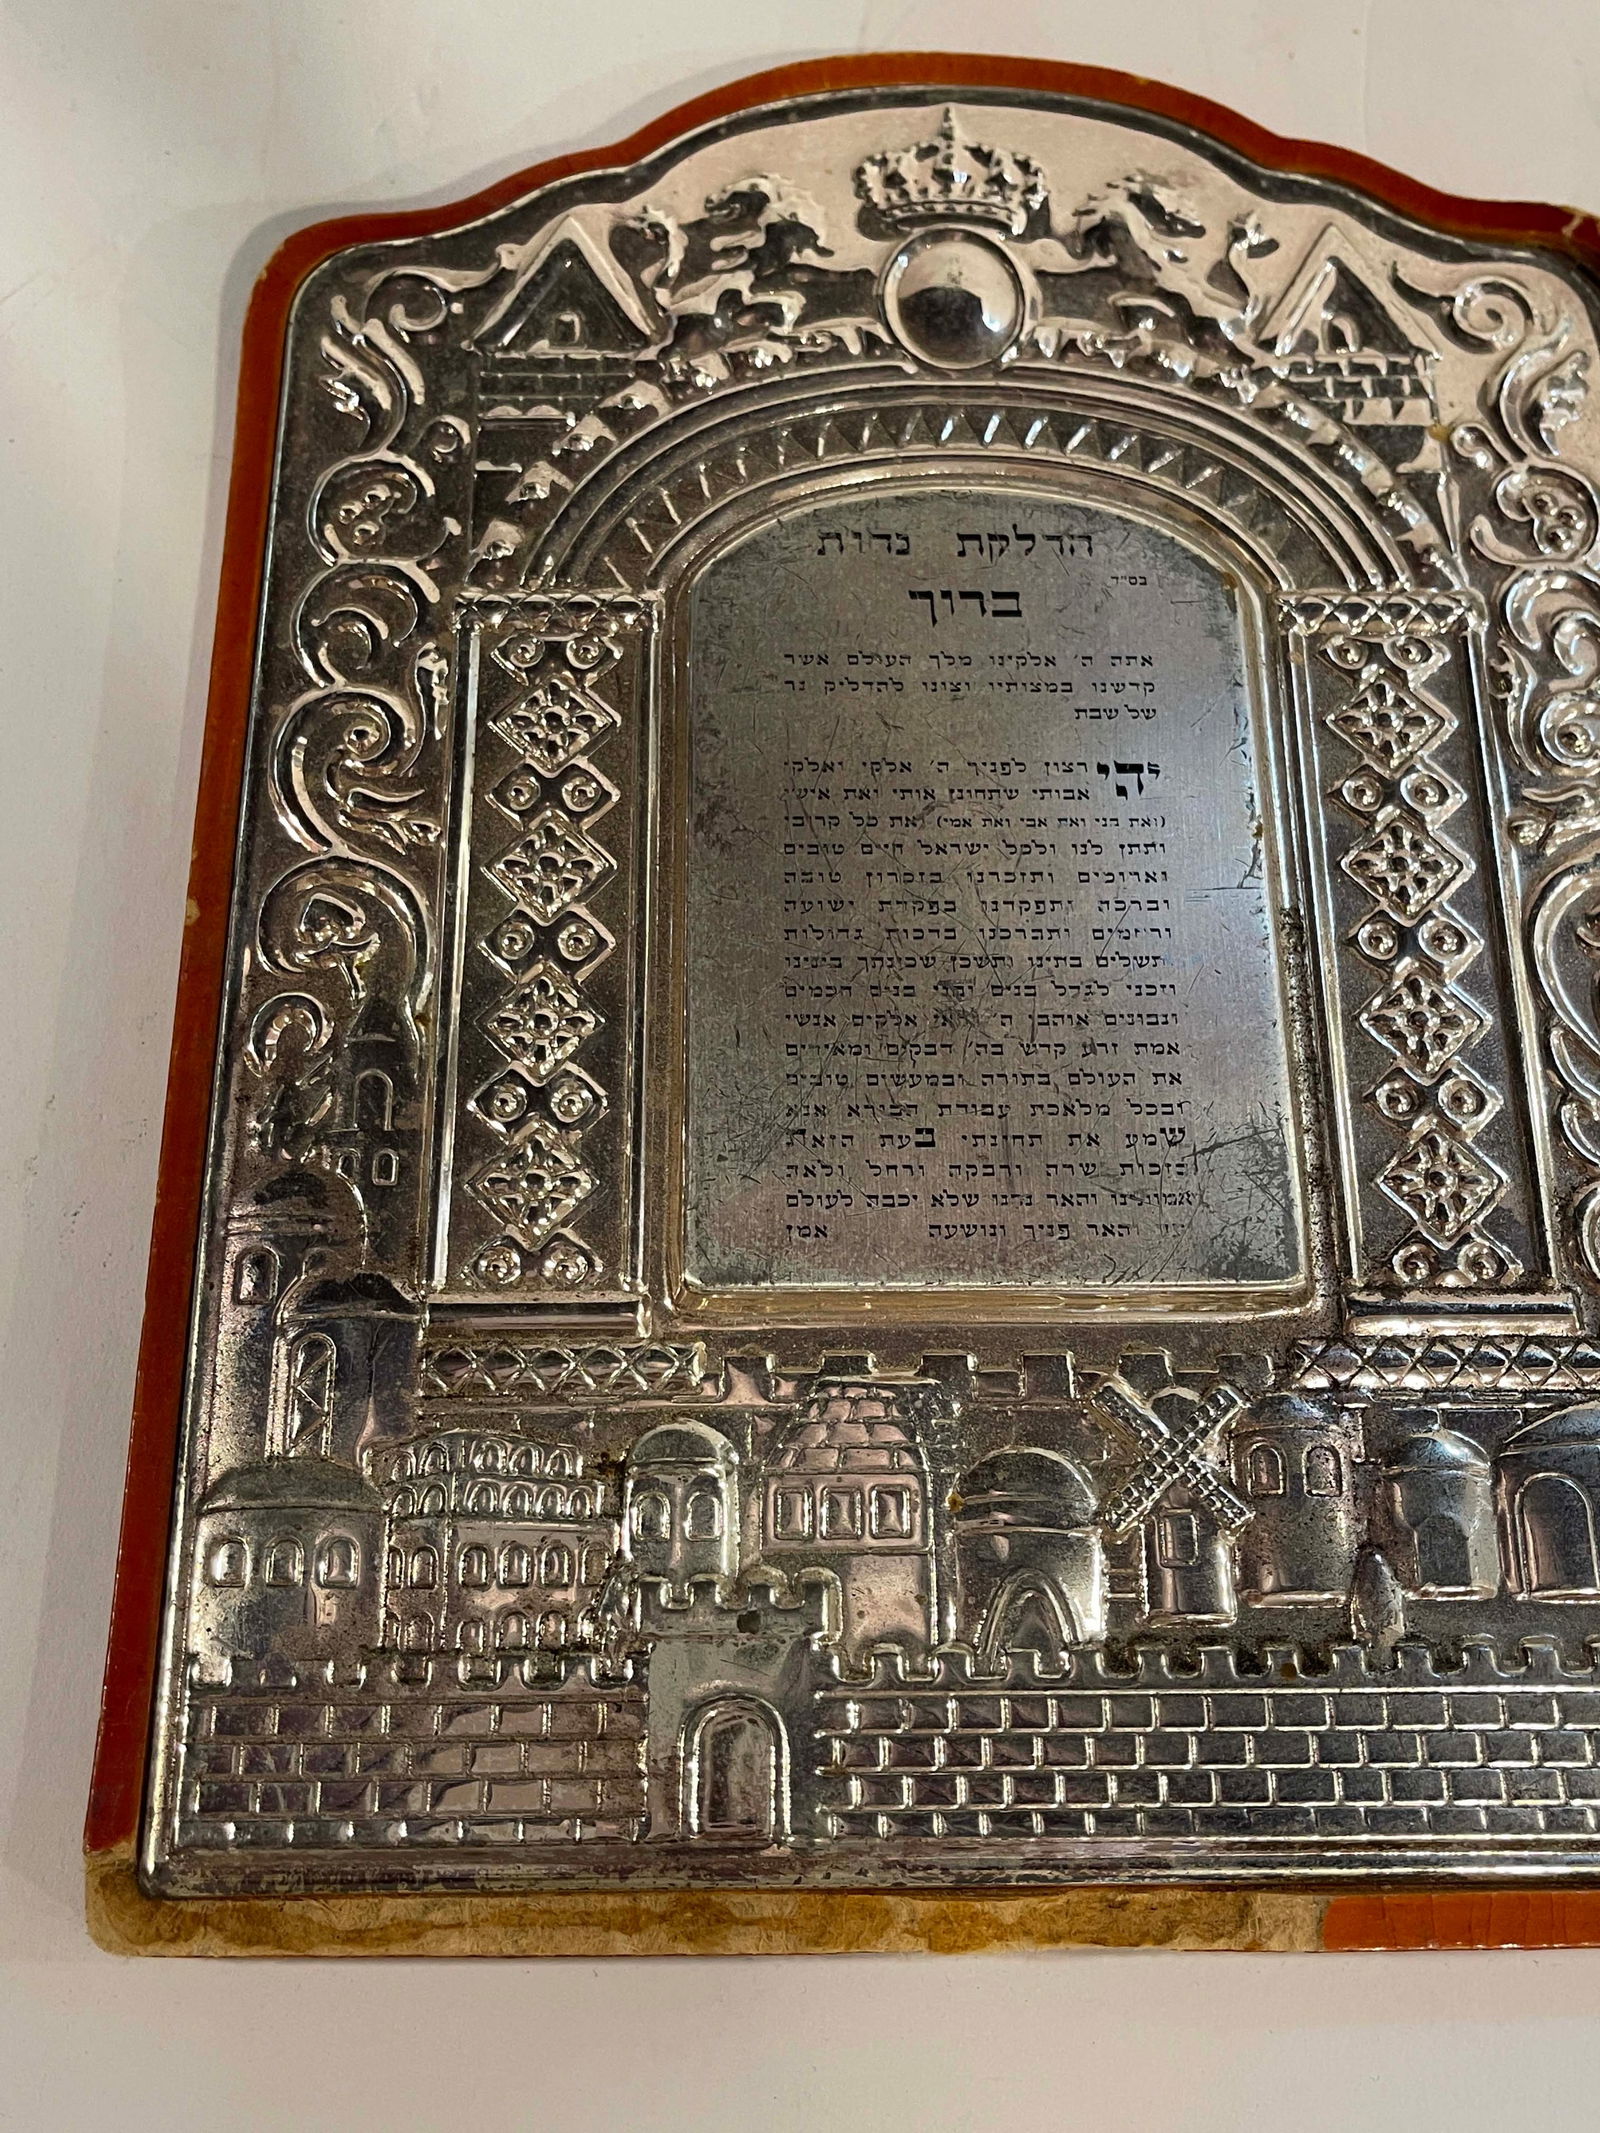 הדלקת נרות
בס״ד
ברוך
אתה ה׳ אלקינו מלך העולם אשר
קדשנו במצותיו וצונו להדליק נר
של שבת
יהי רצון לפניך ה׳ אלקי ואלקי
אבותי שתחונן אותי ואת אישי
(ואת בני ואת אבי ואת אמי) ואת כל קרובי
ותתן לנו ולכל ישראל חיים טובים
וארוכים ותזכרנו בזכרון טובה
וברכה ותפקדנו בפקדת ישועה
ורחמים ותברכנו ברכות גדולות
ותשלים בתינו ותשכן שכינתך בינינו
וזכני לגדל בנים ובני בנים חכמים
ונבונים אוהבי ה׳ יראי אלקים אנשי
אמת זרע קדש בה׳ דבקים ומאירים
את העולם בתורה ובמעשים טובים
ובכל מלאכת עבודת הבורא אנא
שמע את תחינתי בעת הזאת
בזכות שרה ורבקה ורחל ולאה
אמותינו והאר נרנו שלא יכבה לעולם
ועד והאר פניך ונושעה אמן